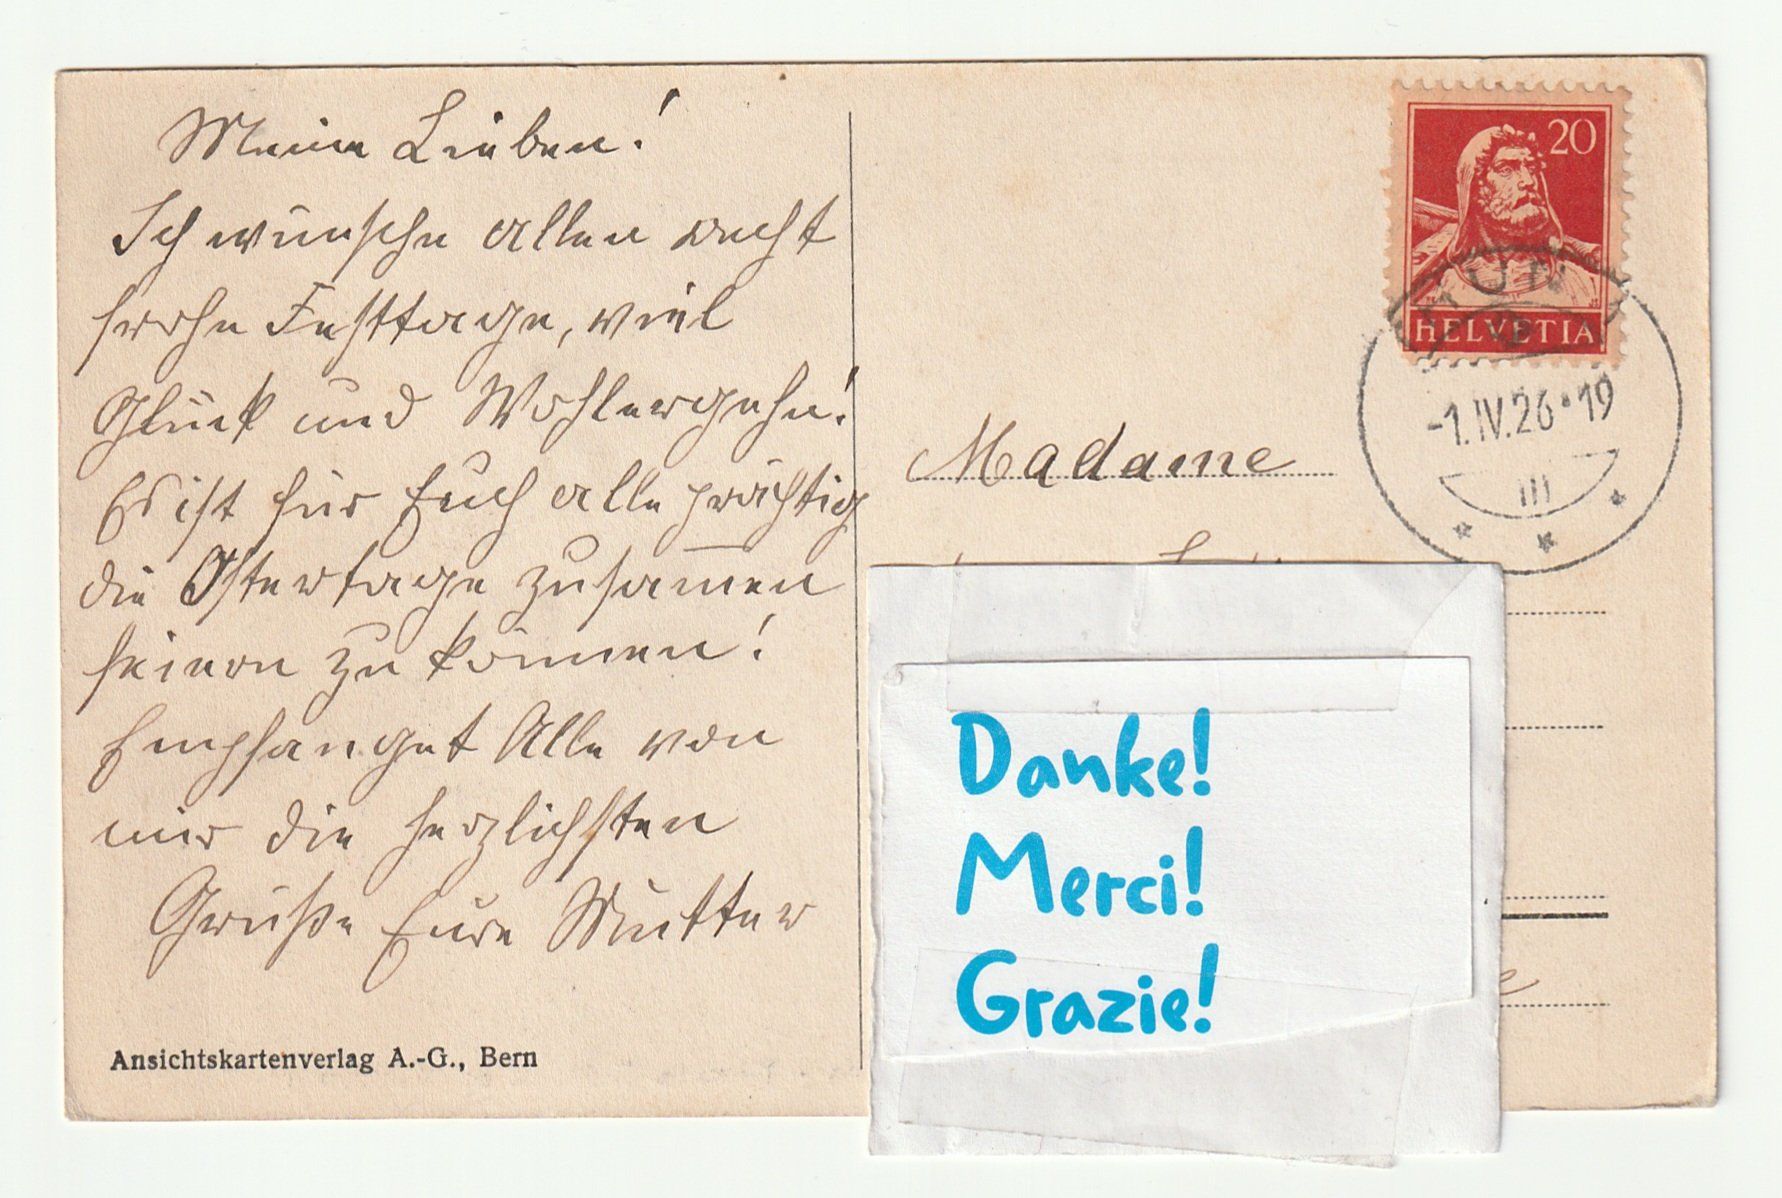 Meine Lieben!
Ich wünsche allen recht
frohe Festtage, viel
Glück und Wohlergehn!
Es ist für Euch alle prächtig
die Ostertage zusam̅en
feiern zu können!
Empfanget Alle von
mir die herzlichsten
Grüße Eure Mutter
Ansichtskartenverlag A.-G., Bern
20
HELVETIA
THUN
-1.IV.26•19
III
Madame
Danke!
Merci!
Grazie!